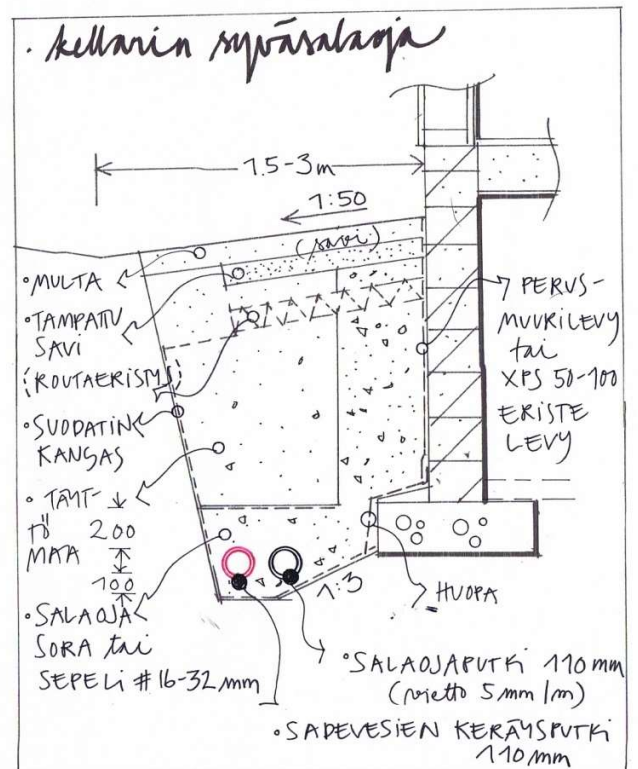 • kellarin syväsalaoja
1.5-3m
1:50
(savi)
• MULTA
• TAMPATTU
SAVI
(ROUTAERISTYS)
• SUODATIN
KANGAS
• TÄYT-
TÖ
MAA
200
100
• SALAOJA
SORA tai
SEPELI # 16-32 mm
PERUS-
MUURILEVY
tai
XPS 50-100
ERISTE
LEVY
1:3
HUOPA
• SALAOJAPUTKI 110 mm
(vietto 5 mm/m)
• SADEVESIEN KERÄYSPUTKI
110 mm